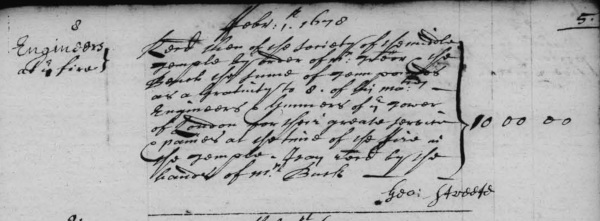 8
Febr: 1. 1678
5.
Engineers
at ye fire
Recd then of the Society of the midle
Temple by order of the
Bench the summe of Tenn pounds
as a Gratuity to 8. of his ma:ts
Engineers & Gunners of ye Tower
of London for their greate service
& paines at the time of the fire in
the Temple I say recd by the
hands of mr Buck
10 00 00
Geo: Streete